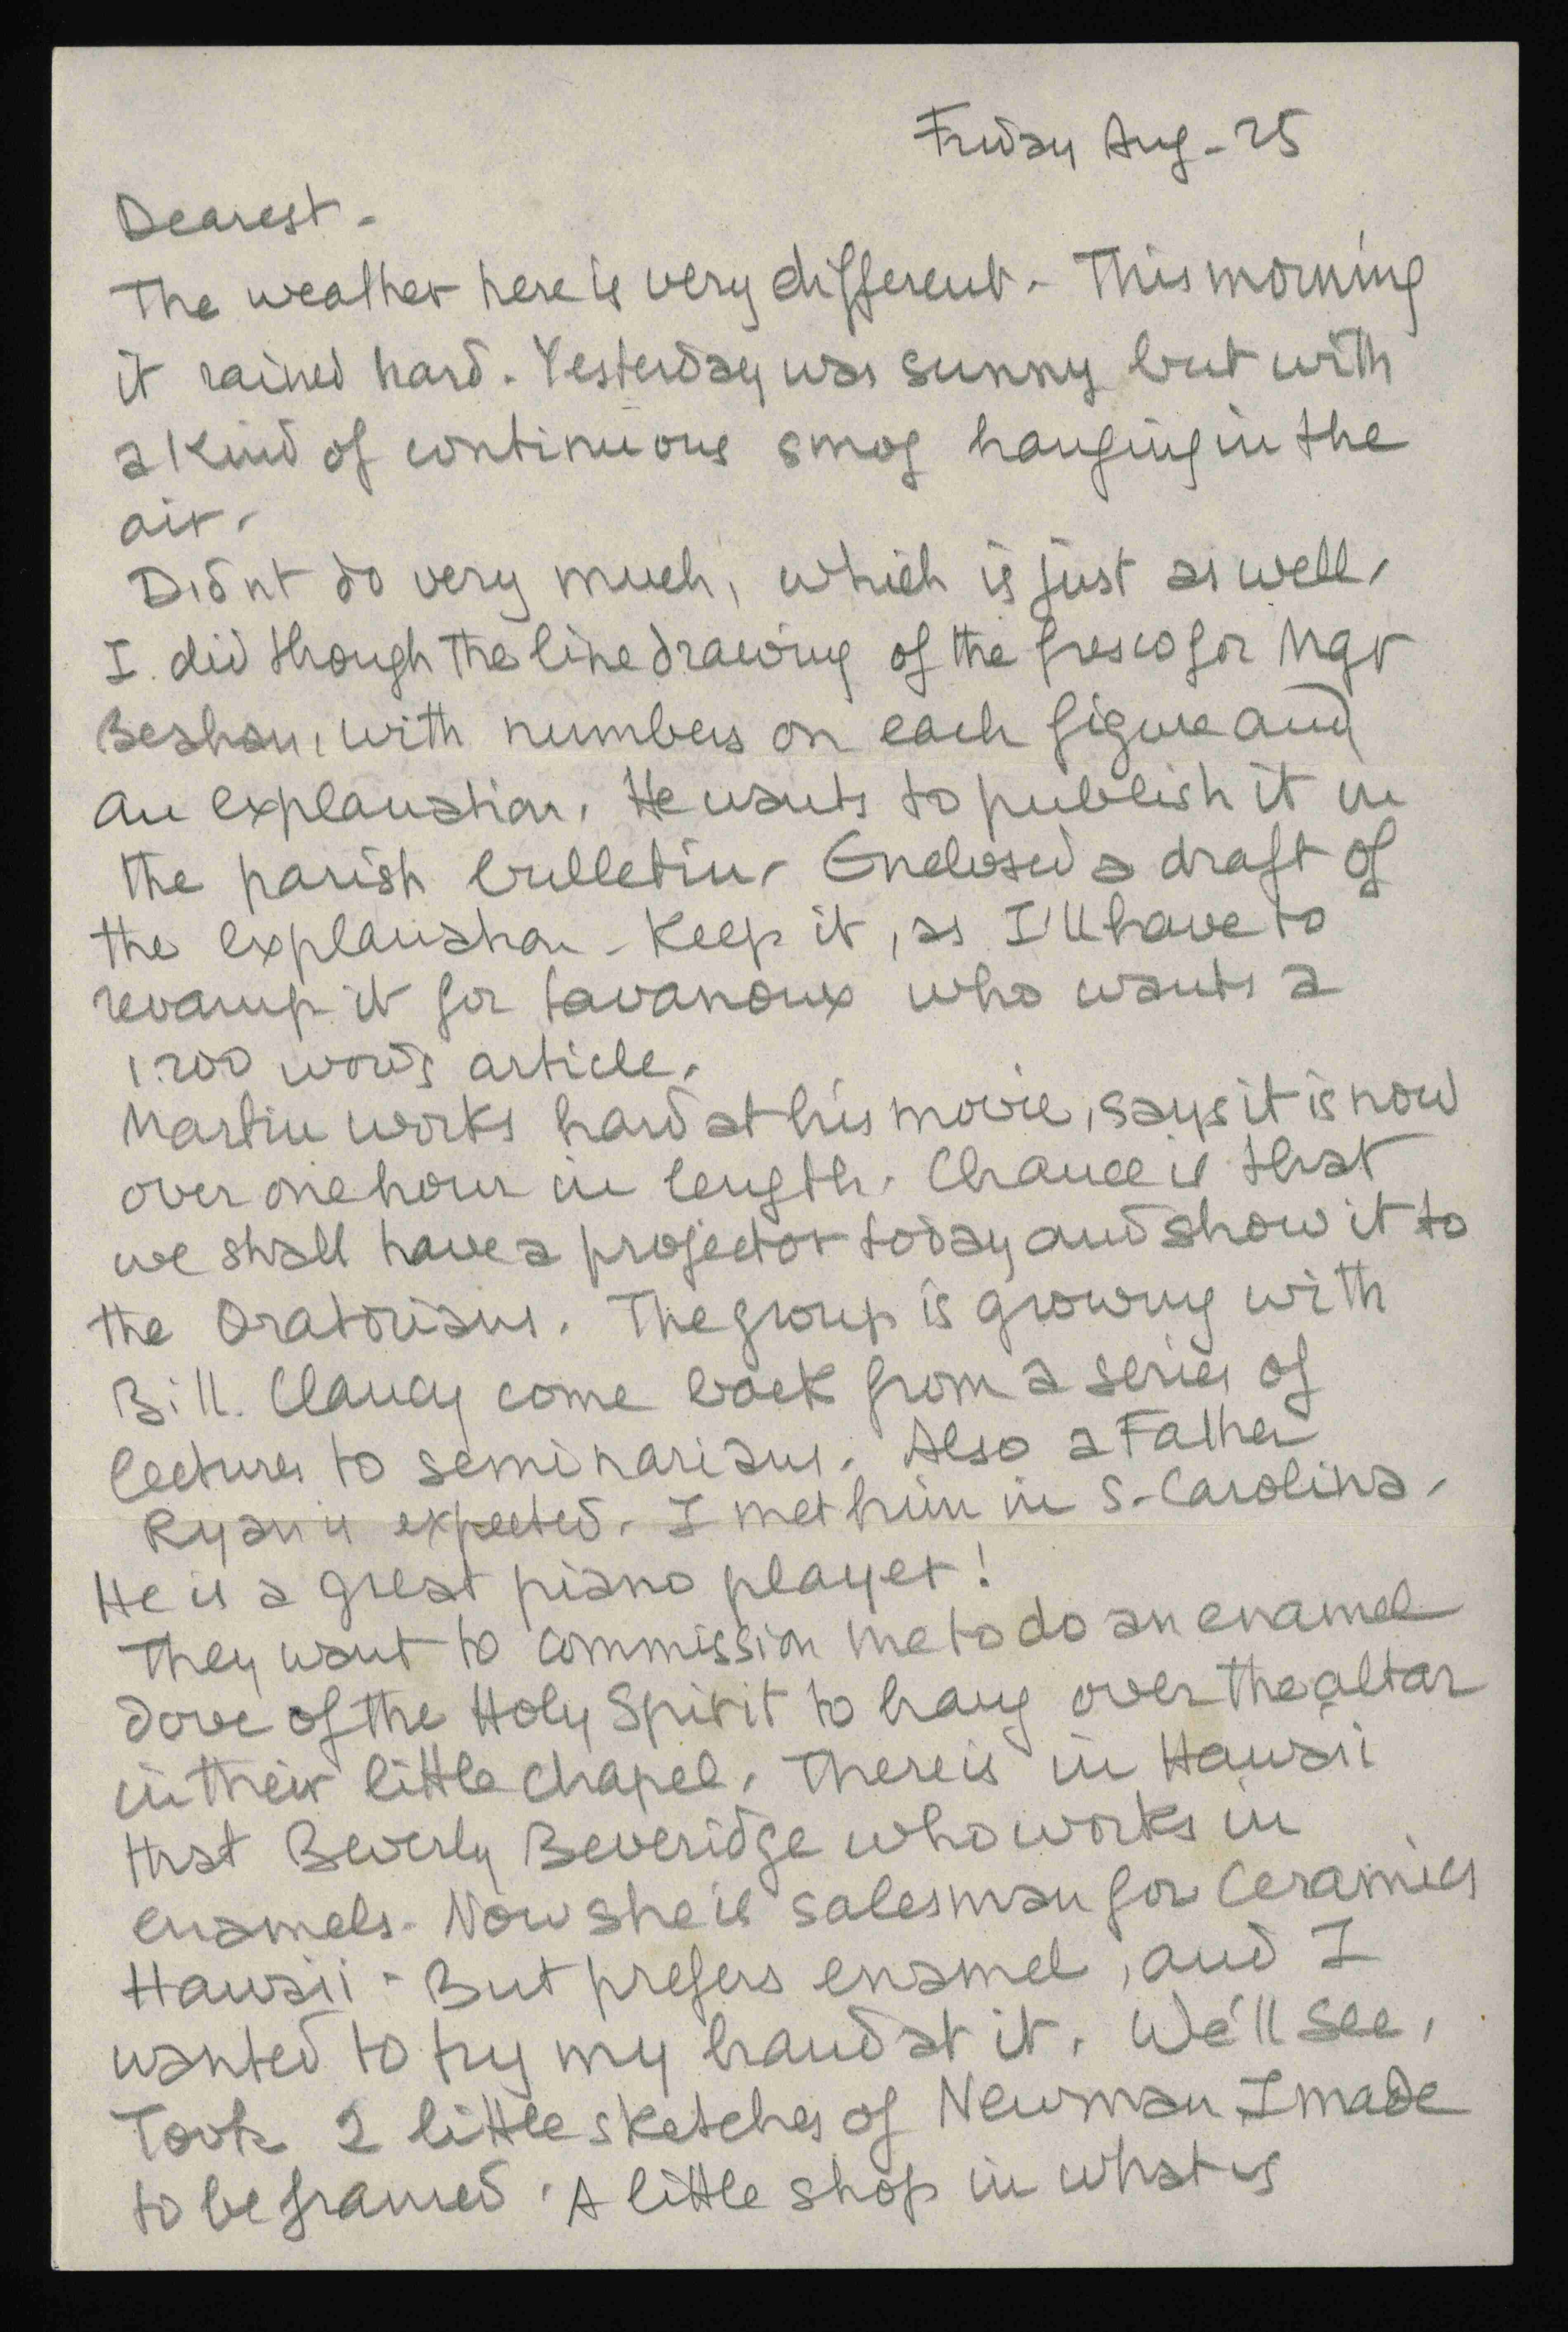 Friday Aug - 25
Dearest -
The weather here is very different. This morning
it rained hard. Yesterday was sunny but with
a kind of continuous smog hanging in the
air.
Didnt do very much, which is just as well.
I did though the line drawing of the fresco for Mgr
with numbers on each figure and
an explanation. He wants to publish it in
the parish bulletin. Enclosed a draft of
the explanation - Keep it, as I'll have to
revamp it for Lavanoux who wants a
1.200 words article.
Martin works hard at his movie, says it is now
over one hour in length. Chance is that
we shall have a projector today and show it to
the Oratorians. The group is growing with
Bill. Clancy come back from a series of
lectures to seminarians. Also a Father
Ryan is expected. I met him in S. Carolina.
He is a great piano player!
They want to commission me to do an enamel
dove of the Holy Spirit to hang over the altar
in their little chapel. There is in Hawaii
that Beverly Beveridge who works in
enamels. Now she is salesman for Ceramics
Hawaii - But prefers enamel, and I
wanted to try my hand at it. We'll see.
Took 2 little sketches of Newman I made
to be framed. A little shop in what is